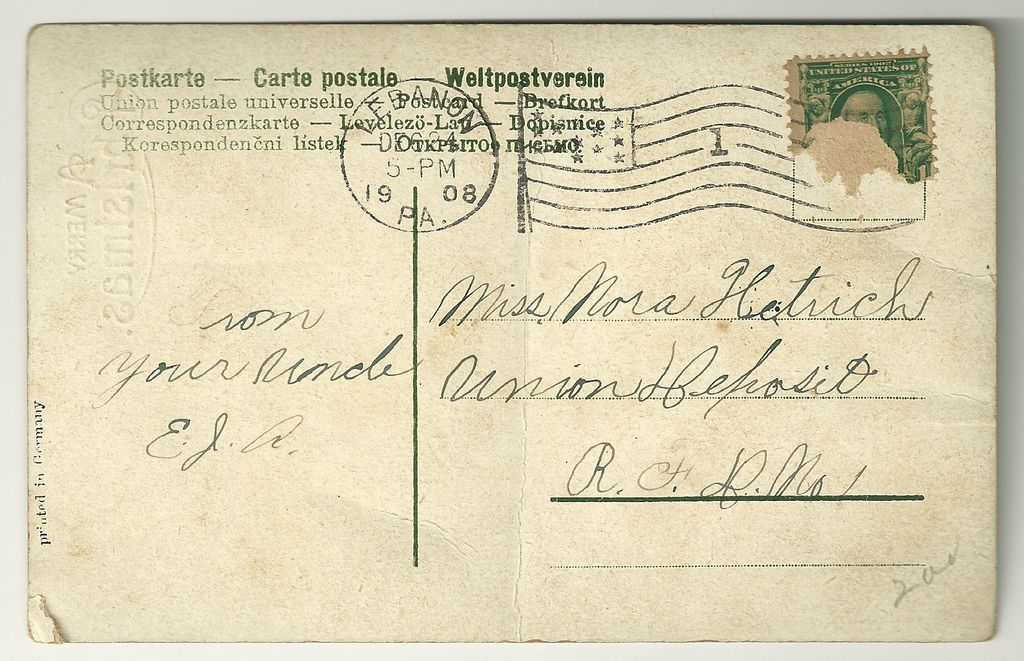 Postkarte — Carte postale — Weltpostverein
Union postale universelle — Postcard — Brefkort
Correspondenzkarte — Levelező-Lap — Dopisnice
Korespondenční lístek — Открытое письмо
LEBANON
DEC 24
5-PM
1908
PA.
1
SERIES 1902
UNITED STATES OF
AMERICA
1
A MERRY
Christmas
From
your Uncle
E. J. A.
Miss. Nora Hetrich
Union Deposit
R. F. D. No 1
printed in Germany